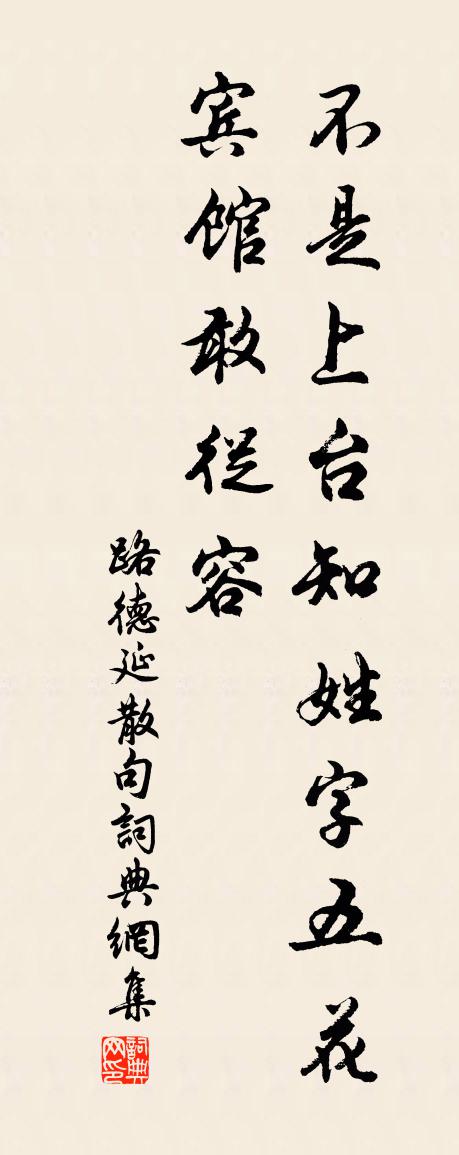 不是上台知姓字五花
宾馆敢從容
路德延散句詞典網集
詞典网印